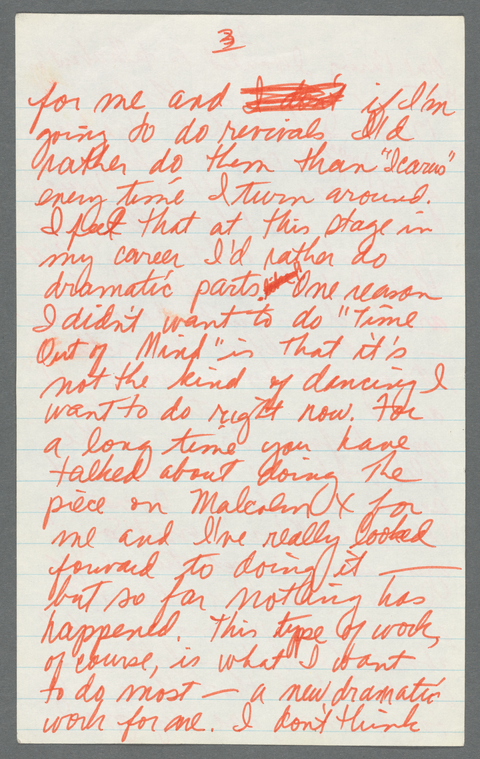 3
for me and I don't if I'm
going to do revivals I'd
rather do them than "Icarus"
every time I turn around.
I feel that at this stage in
my career I'd rather do
dramatic parts. One reason
I didn't want to do "Time
Out of Mind" is that it's
not the kind of dancing I
want to do right now. For
a long time you have
talked about doing the
piece on Malcolm X for
me and I've really looked
forward to doing it —
but so far nothing has
happened. This type of work,
of course, is what I want
to do most — a new dramatic
work for me. I don't think